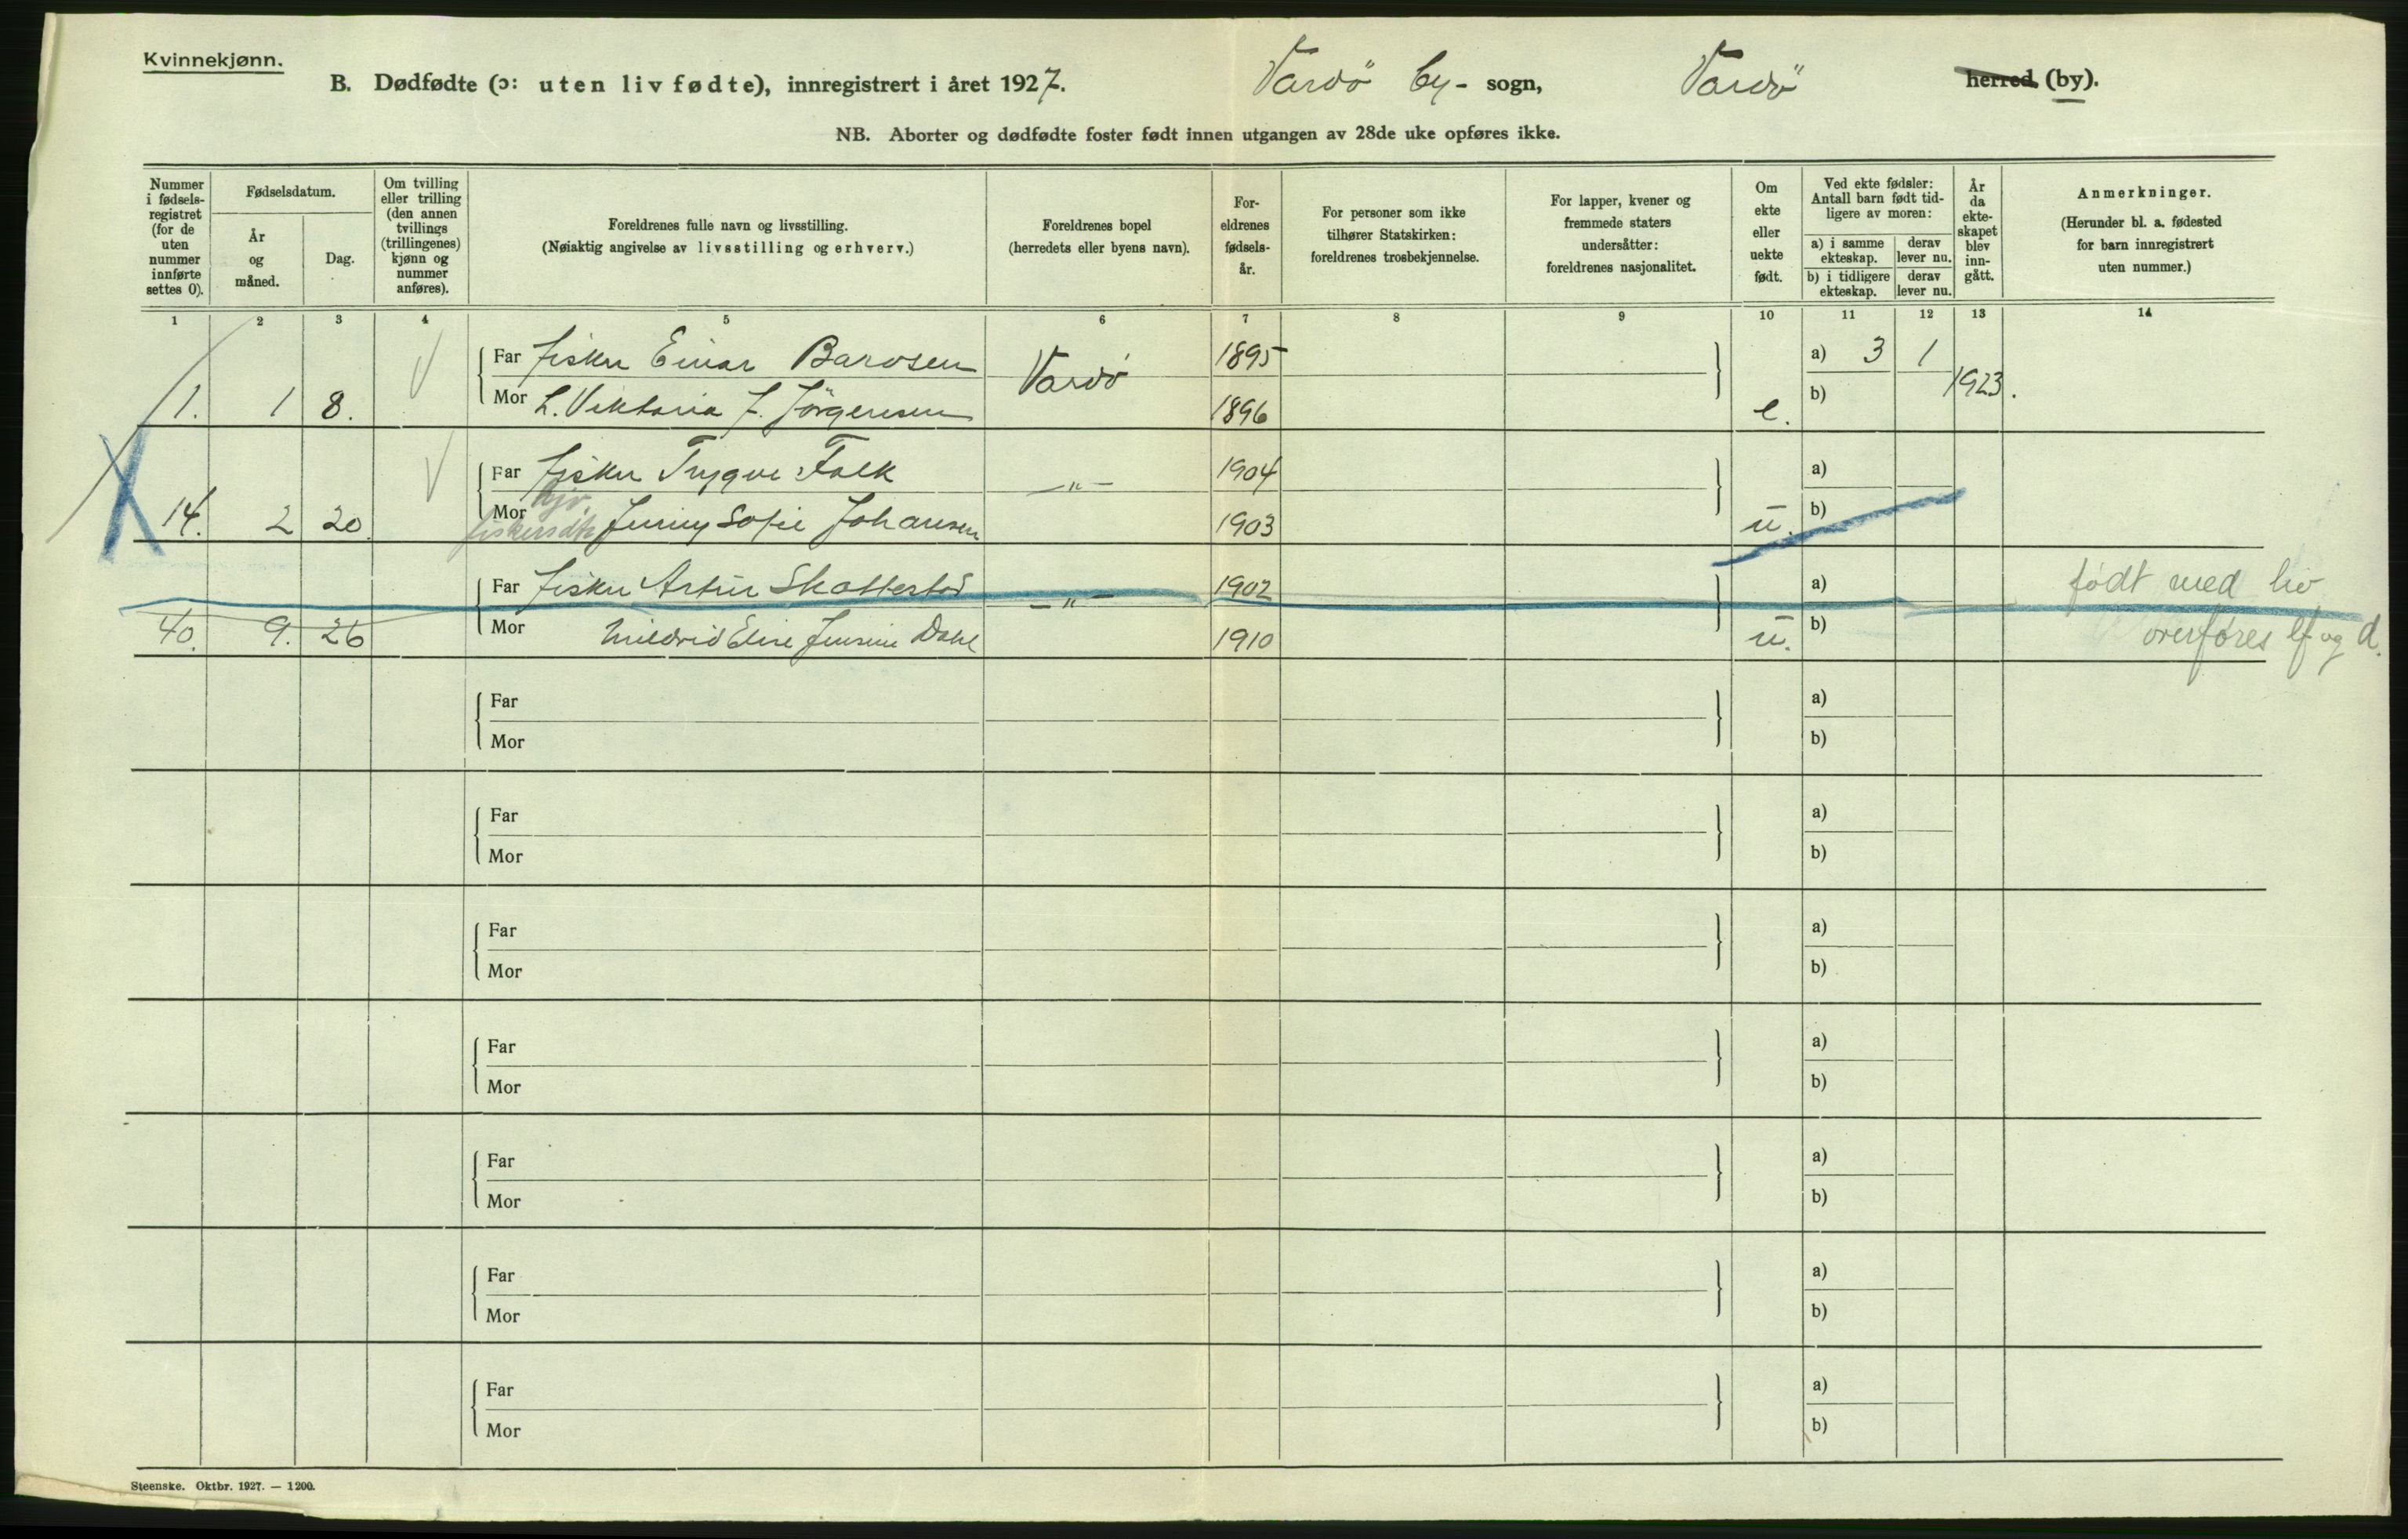 Kvinnekjønn.
B. Dødfødte (ɔ: uten liv fødte), innregistrert i året 1927. Vardö by- sogn, Vardö herred (by).
NB. Aborter og dødfødte foster født innen utgangen av 28de uke opføres ikke.
Nummer i fødsels-registret (for de uten nummer innførte settes 0).
Fødselsdatum.
År og måned.
Dag.
Om tvilling eller trilling (den annen tvillings (trillingenes) kjønn og nummer anføres).
Foreldrenes fulle navn og livsstilling.
(Nøiaktig angivelse av livsstilling og erhverv.)
Foreldrenes bopel
(herredets eller byens navn).
For-eldrenes fødsels-år.
For personer som ikke tilhører Statskirken: foreldrenes trosbekjennelse.
For lapper, kvener og fremmede staters undersåtter: foreldrenes nasjonalitet.
Om ekte eller uekte født.
Ved ekte fødsler: Antall barn født tid-ligere av moren:
a) i samme ekteskap.
derav lever nu.
b) i tidligere ekteskap.
derav lever nu.
År da ekte-skapet blev inn-gått.
Anmerkninger.
(Herunder bl. a. fødested for barn innregistrert uten nummer.)
1 2 3 4 5 6 7 8 9 10 11 12 13 14
Far fisker Einar Barosen Vardö 1895 a) 3 1
1. 1 8. Mor L. Viktoria J. Jörgensen 1896 e. b) 1923.
Far fisker Trygve Falk —"— 1904 a)
hjv.
14. 2 20. Mor fiskersdtr Jenny Sofie Johansen 1903 u. b)
Far fisker Artur Skattestad —"— 1902 a) født med liv
40. 9. 26 Mor Mildrid Elise Jensine Dahl 1910 u. b) overføres lf og d.
Far a)
Mor b)
Far a)
Mor b)
Far a)
Mor b)
Far a)
Mor b)
Far a)
Mor b)
Far a)
Mor b)
Far a)
Mor b)
Steenske. Oktbr. 1927. — 1200.